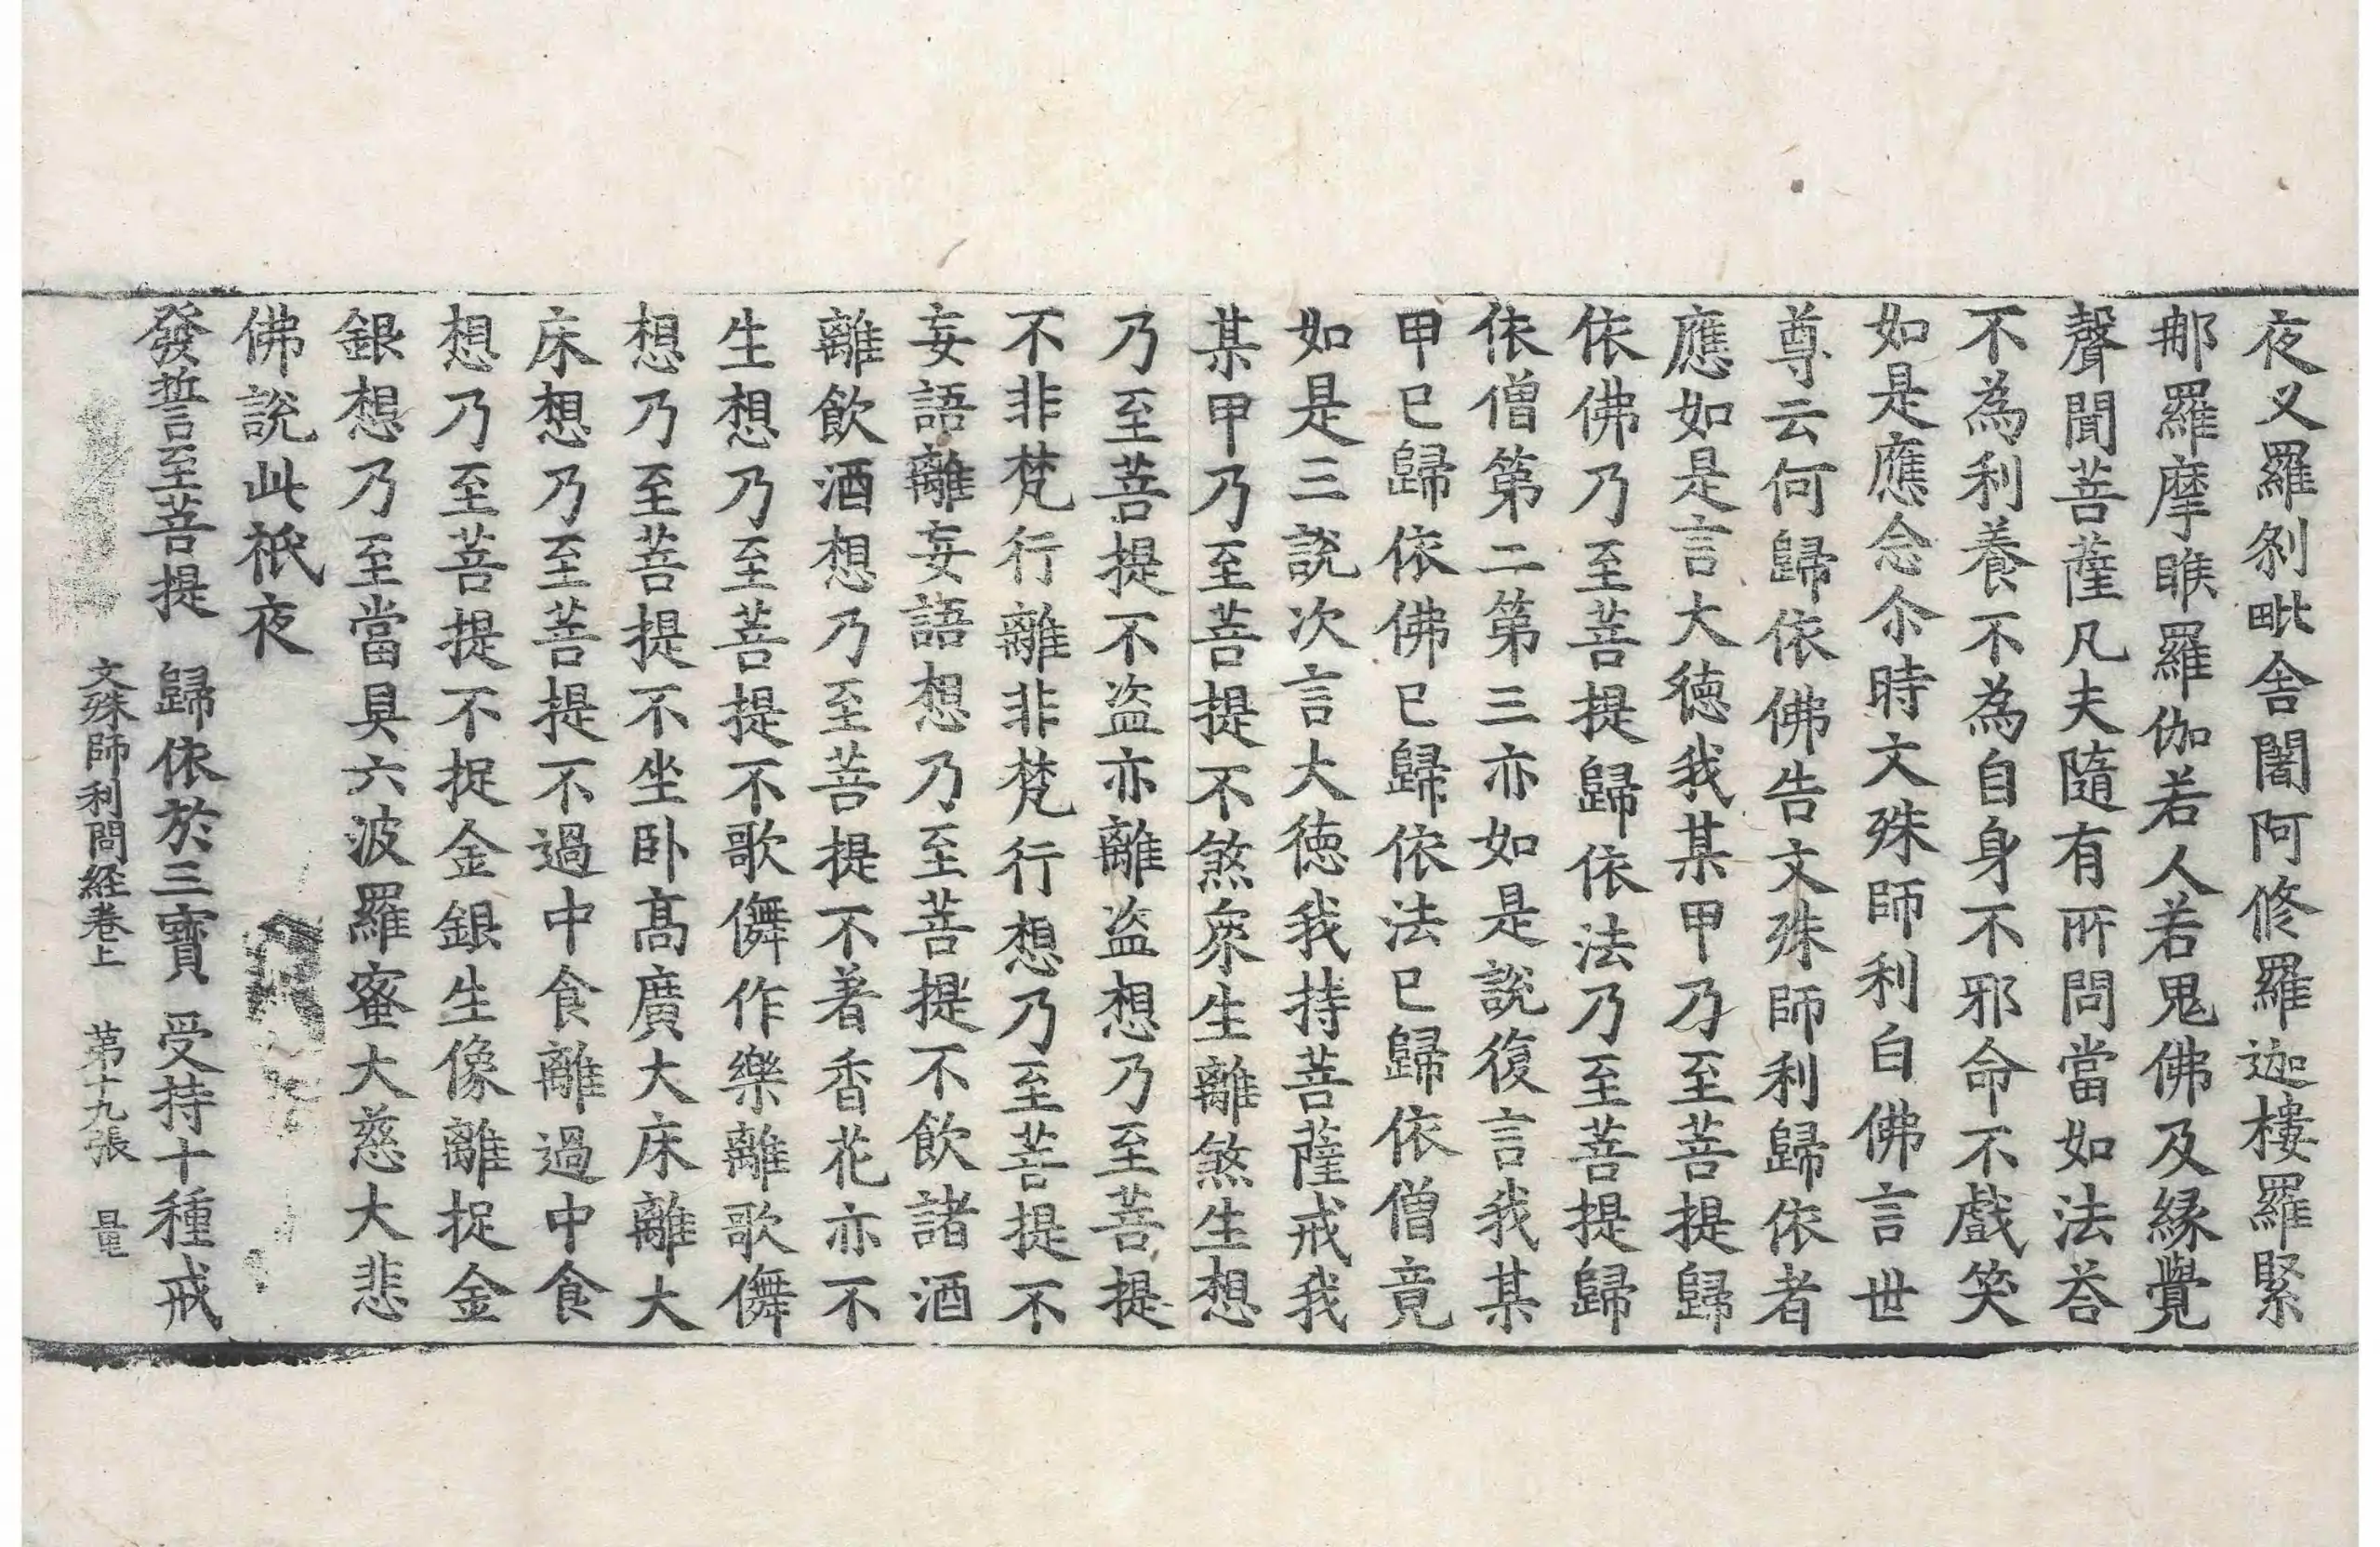 夜叉羅刹毗舍闍阿修羅迦樓羅緊
那羅摩睺羅伽若人若鬼佛及縁覺
聲聞菩薩凡夫隨有所問當如法荅
不為利養不為自身不邪命不戲笑
如是應念尒時文殊師利白佛言世
尊云何歸依佛告文殊師利歸依者
應如是言大德我某甲乃至菩提歸
依佛乃至菩提歸依法乃至菩提歸
依僧第二第三亦如是說復言我某
甲已歸依佛已歸依法已歸依僧竟
如是三說次言大德我持菩薩戒我
某甲乃至菩提不煞衆生離煞生想
乃至菩提不盜亦離盜想乃至菩提
不非梵行離非梵行想乃至菩提不
妄語離妄語想乃至菩提不飲諸酒
離飲酒想乃至菩提不著香花亦不
生想乃至菩提不歌儛作樂離歌儛
想乃至菩提不坐卧髙廣大床離大
床想乃至菩提不過中食離過中食
想乃至菩提不捉金銀生像離捉金
銀想乃至當具六波羅蜜大慈大悲
佛說此祇夜
發誓至菩提　歸依於三寶　受持十種戒
文殊師利問経卷上　第十九張　量